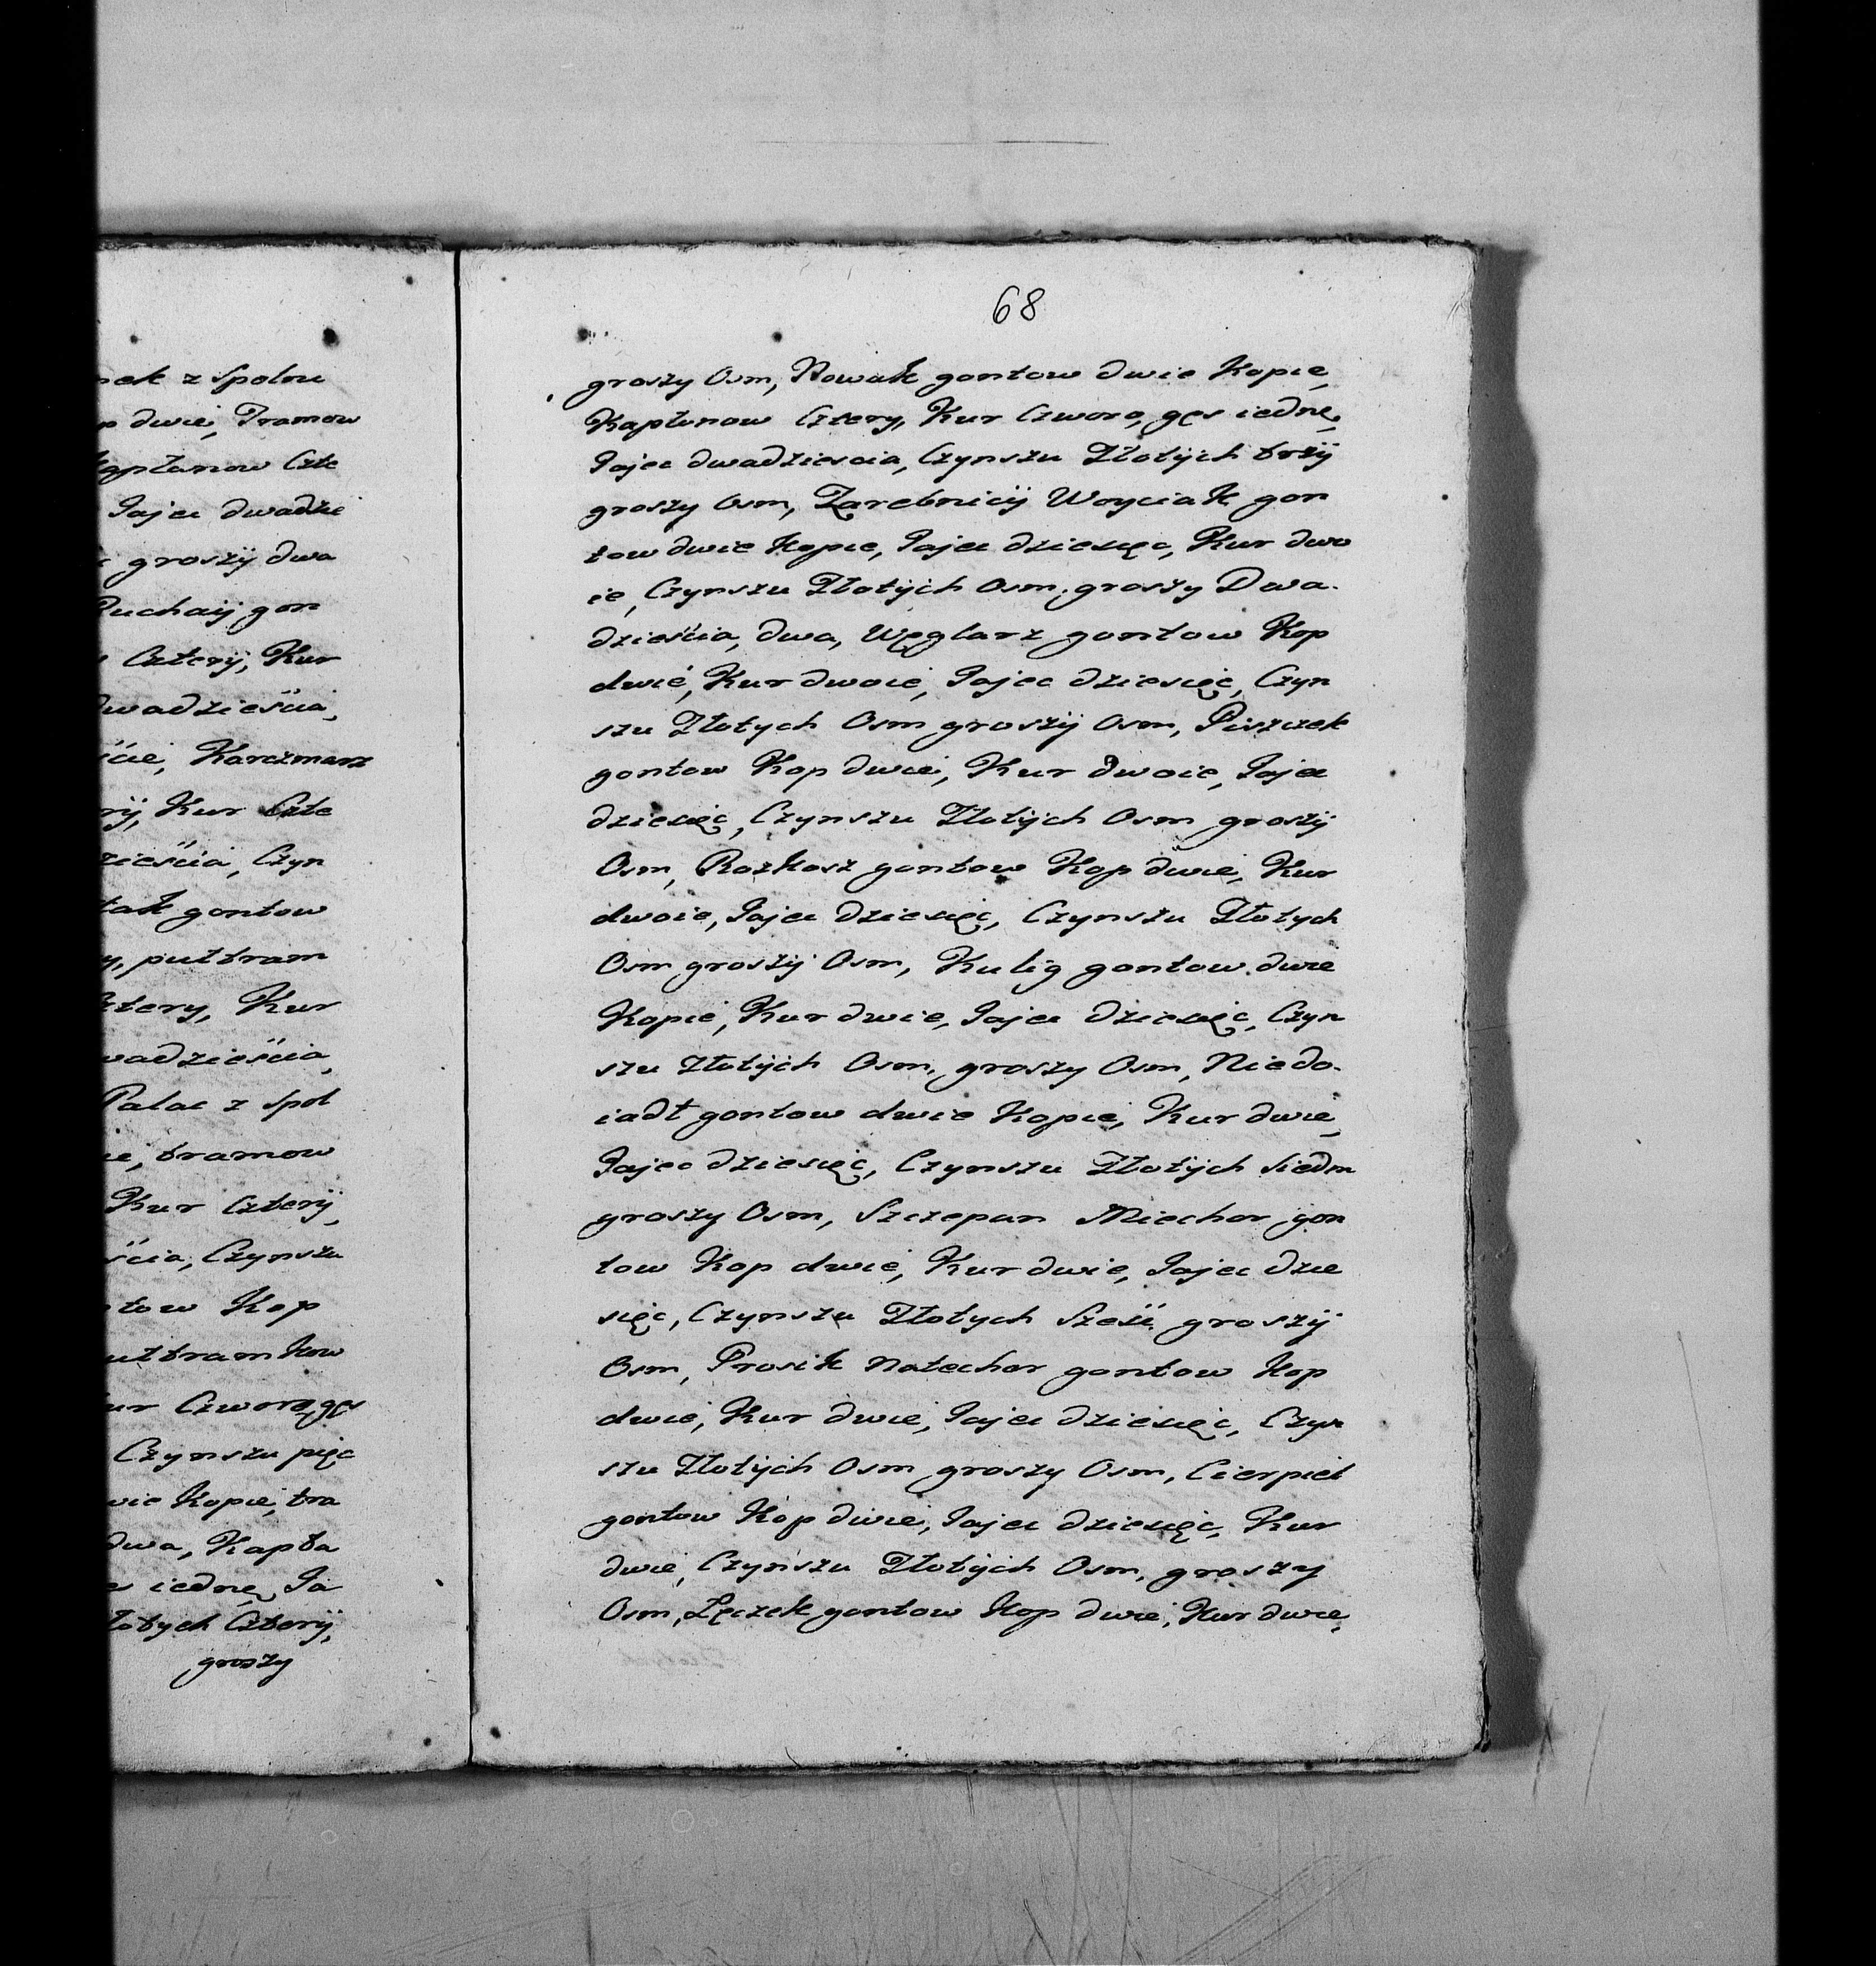 nek z spolne
p dwie, Tramow
apłanow Czte
Jajec dwadzie
groszÿ dwa
Ruchaÿ gon
Czterÿ, Kur
dwadzieścia,
ście, Karczmarz
rÿ, Kur Czte
zieścia, Czyn
tak gontow
y, pułtram
ztery, Kur
wadzieścia,
Palac z spol
ie, tramow
Kur Czterÿ,
ścia, Czynszu
tow Kop
ułtramkow
ur Czworo, gęs
Czynszu pięc
wie Kopie, tra
dwa, Kapła
s iednę, Ja
łotych Czterÿ,
groszy
68
groszy Osm, Nowak gontow dwie Kopie,
Kapłunow Cztery, Kur Czworo, gęs iednę,
Jajec dwadziescia, Czynszu Złotÿch trzÿ
groszy Osm, Zarębnicÿ Woyciak gon
tow dwie Kopie, Jajec dziesięc, Kur dwo
ie, Czynszu Złotÿch Osm, groszy Dwa.
dzieścia, dwa, Węglarz gontow Kop
dwie, Kur dwoie, Jajec dziesięc, Czyn
szu Złotych Osm groszÿ Osm, Piszczek
gontow Kop dwie, Kur dwoie, Jajec
dziesięc, Czynszu Złotÿch Osm groszÿ
Osm, Rozkosz gontow Kop dwie, Kur
dwoie, Jajec dziesięc, Czynszu Złotych
Osm groszÿ Osm, Kulig gontow dwie
Kopie, Kur dwie, Jajec dziesięc, Czyn
szu Złotÿch Osm, groszy Osm, Niedo.
iadł gontow dwie Kopie, Kur dwie,
Jajec dziesięc, Czynszu Złotÿch siedm
groszy Osm, Szczepan Miechor gon
tow Kop dwie, Kur dwie, Jajec dzie
sięc, Czynszu Złotych Sześć groszÿ
Osm, Prosik Natechor gontow Kop
dwie, Kur dwie, Jajec dziesięc, Czyn
szu Złotÿch Osm groszy Osm, Cierpieł
gontow Kop dwie, Jajec dziesięc, Kur
dwie, Czynszu Złotÿch Osm, groszy
Osm, Łęczek gontow Kop dwie, Kur dwie,